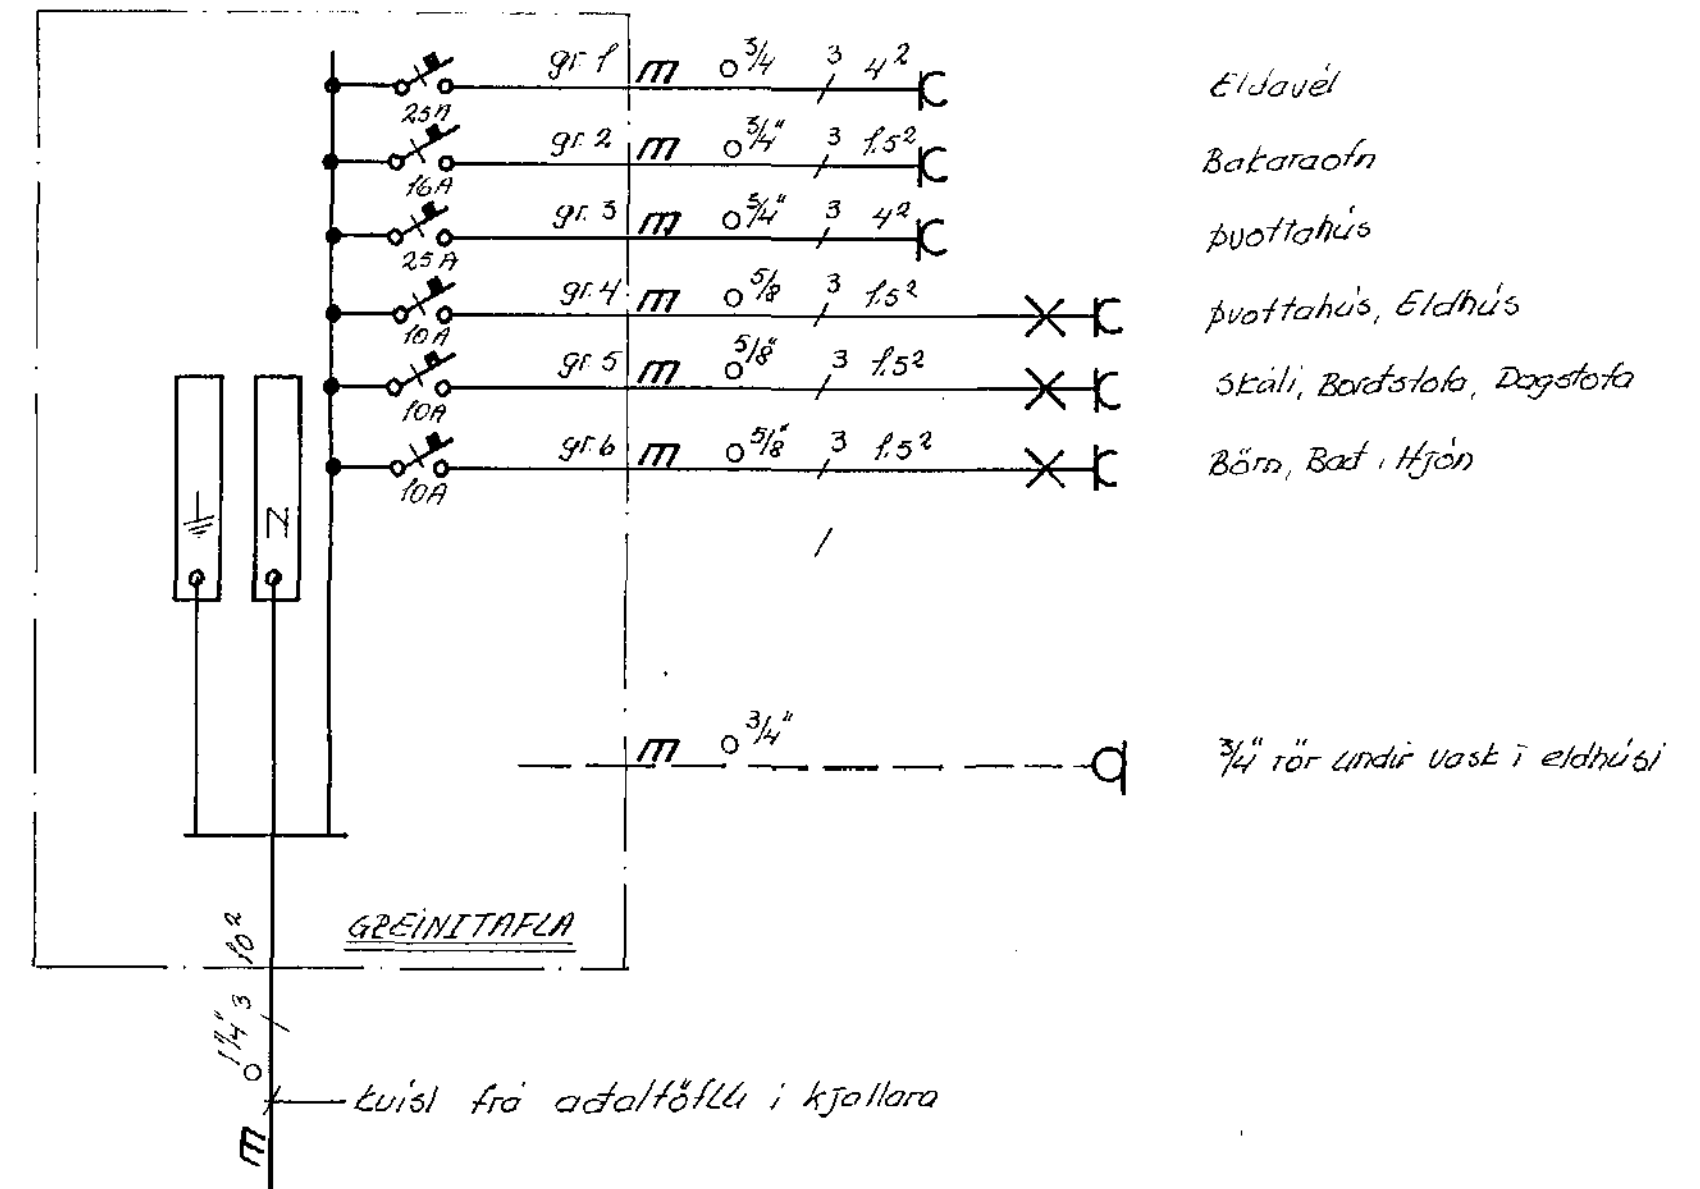 gr. 1 m ○ 3/4 3 4² Eldavél
25A
gr. 2 m ○ 3/4" 3 1.5² Bakaraofn
16A
gr. 3 m ○ 3/4" 3 4² Þvottahús
25A
gr. 4 m ○ 5/8 3 1.5² Þvottahús, Eldhús
10A
gr. 5 m ○ 5/8" 3 1.5² Skáli, Borðstofa, Dagstofa
10A
gr. 6 m ○ 5/8" 3 1.5² Börn, Bað, Hjón
10A
N
m ○ 3/4" 3/4" rör undir vask í eldhúsi
GREINITAFLA
m ○ 1 1/4" 3 10²
kvísl frá aðaltöflu í kjallara